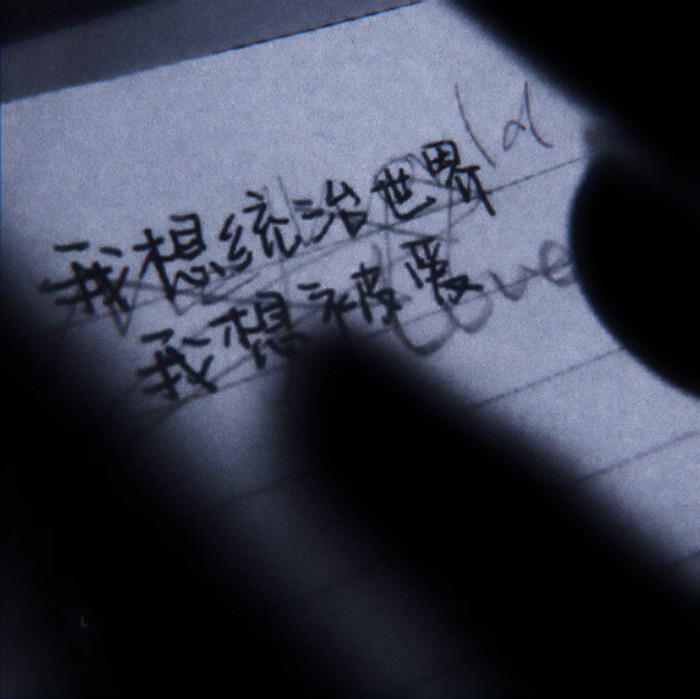 我想统治世界
我想被爱
Love